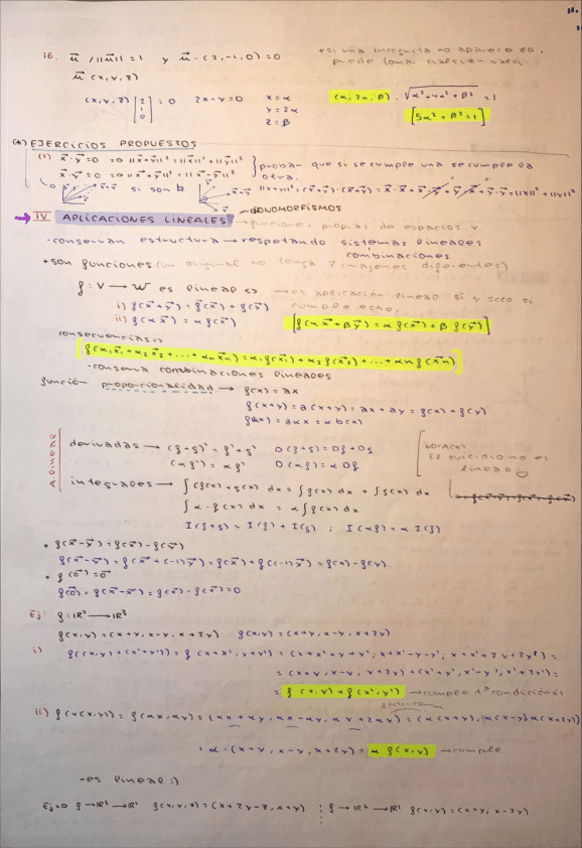 16. u⃗ / ||u⃗|| = 1 y u⃗ · (2,-1,0) = 0 + si una incógnita no aparece
puede tomar cualquier valor
u⃗ (x, y, z)
(x, y, z) [2 1 0] = 0 2x - y = 0 x = α (α, 2α, β), √(α² + 4α² + β²) = 1
y = 2α
z = β [5α² + β² = 1]
(+) EJERCICIOS PROPUESTOS
(1) x⃗ · y⃗ = 0 => ||x⃗ + y⃗||² = ||x⃗||² + ||y⃗||² } probar que si se cumple una se cumple la
otra.
si son
IV APLICACIONES LINEALES → funciones propias de espacios v
- conservan estructura → respetando sistemas lineales
combinaciones
+ son funciones (un original no tenga 2 imágenes diferentes)
f: V → W es lineal <=> → es aplicación lineal si y solo si
cumple esto
i) f(x⃗ + y⃗) = f(x⃗) + f(y⃗)
ii) f(αx⃗) = αf(x⃗) [f(αx⃗ + βy⃗) = αf(x⃗) + βf(y⃗)]
consecuencias =>
f(α₁x⃗₁ + α₂x⃗₂ + ... + αₙx⃗ₙ) = α₁f(x⃗₁) + α₂f(x⃗₂) + ... + αₙf(x⃗ₙ)
- conserva combinaciones lineales
función proporcionalidad → f(x) = ax
f(x+y) = a(x+y) = ax + ay = f(x) + f(y)
A. lineal
derivadas → (f+g)' = f' + g' D(f+g) = Df + Dg
(αf)' = αf' D(αf) = αDf
NOTA:
El suicidio no es
lineal
integrales → ∫(f(x) + g(x)) dx = ∫f(x) dx + ∫g(x) dx
∫α · f(x) dx = α∫f(x) dx
I(f+g) = I(f) + I(g) ; I(αf) = αI(f)
• f(x⃗ - y⃗) = f(x⃗) - f(y⃗)
f(x⃗ - y⃗) = f(x⃗ + (-1)y⃗) = f(x⃗) + f((-1)y⃗) = f(x) - f(y)
• f(0⃗) = 0⃗
f(0⃗) = f(x⃗ - x⃗) = f(x⃗) - f(x⃗) = 0
Ej: f: ℝ² → ℝ³
f(x,y) = (x+y, x-y, x+2y) f(x,y) = (x+y, x-y, x+2y)
i) f((x,y) + (x',y')) = f(x+x', y+y') = (x+x'+y+y', x+x'-y-y', x+x'+2y+2y') =
= (x+y, x-y, x+2y) + (x'+y', x'-y', x'+2y') =
= f(x,y) + f(x',y') → cumple 1ª condición
ii) f(α(x,y)) = f(αx, αy) = (αx+αy, αx-αy, αx+2αy) = (α(x+y), α(x-y), α(x+2y))
= α · (x+y, x-y, x+2y) = αf(x,y) → cumple
- es lineal :)